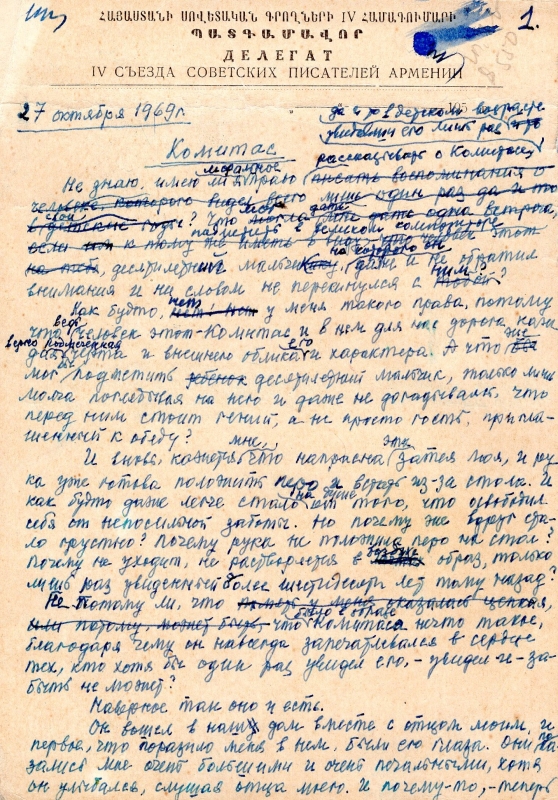 1.
ՀԱՅԱՍՏԱՆԻ ՍՈՎԵՏԱԿԱՆ ԳՐՈՂՆԵՐԻ IV ՀԱՄԱԳՈՒՄԱՐԻ
ՊԱՏԳԱՄԱՎՈՐ
ДЕЛЕГАТ
IV СЪЕЗДА СОВЕТСКИХ ПИСАТЕЛЕЙ АРМЕНИИ
195
27 октября 1969г.
да и то в детском возрасте
его лишь раз
Комитас
рассказывать о Комитасе,
моральное
Не знаю, имею ли я право писать воспоминания о
человеке которого видел всего лишь один раз да и то
свои
в детские годы? Что могла дать одна встреча,
если к тому же иметь в виду, что этот
на которого он
десятилетний мальчик, даже и не обратил
ним?
внимания и ни словом не перекинулся с
нет
Как будто, у меня такого права, потому
ведь
что человек этот - Комитас и в нем для нас дорога каж-
дая черта и внешнего облика его и характера. А что же
бы
мог подметить ребенок десятилетний мальчик, только лишь
молча поглядывая на него и даже не догадываясь, что
перед ним стоит гений, а не просто гость, пригла-
шенный к обеду?
мне, эта
И вновь, кажется, что напрасна затея моя, и ру-
ка уже готова положить перо и встать из-за стола. И
на душе
как будто даже легче стало от того, что освободил
себя от непосильной заботы. Но почему же вдруг ста-
ло грустно? Почему рука не положила перо на стол?
воздухе
Почему не уходит, не растворяется в образ, только
лишь раз увиденный более шестидесяти лет тому назад?
Не Потому ли, что память у меня оказалась цепкая,
было в образе
или потому, может быть что Комитаса нечто такое,
благодаря чему он навсегда запечатлевался в сердце
тех, кто хотя бы один раз увидел его, - увидел и за-
быть не может?
Наверное так оно и есть.
Он вошел в наш дом вместе с отцом моим, и
первое, что поразило меня в нем, были его глаза. Они ка-
зались мне очень большими и очень печальными, хотя
он улыбался, слушая отца моего. И почему-то, - теперь